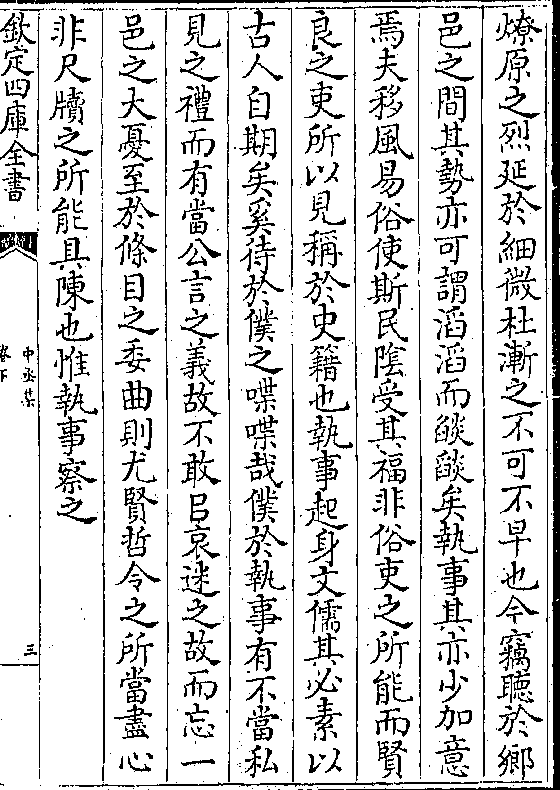 燎原之烈延於細微杜漸之不可不早也今竊聽於鄉
邑之間其勢亦可謂滔滔而燄燄矣執事其亦少加意
焉夫移風易俗使斯民陰受其福非俗吏之所能而賢
良之吏所以見稱於史籍也執事起身文儒其必素以
古人自期矣奚待於僕之喋喋哉僕於執事有不當私
見之禮而有當公言之義故不敢㠯哀迷之故而忘一
邑之大憂至於條目之委曲則尤賢哲令之所當盡心
非尺牘之所能具陳也惟執事察之
欽定四庫全書
中丞集
卷下
三